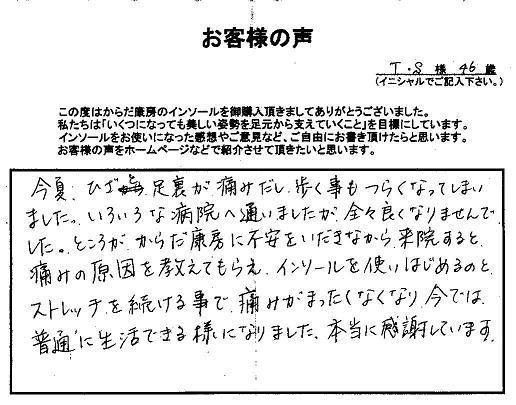 お客様の声
T・S 様 46 歳
(イニシャルでご記入下さい。)
この度はからだ康房のインソールを御購入頂きましてありがとうございました。
私たちは「いくつになっても美しい姿勢を足元から支えていくこと」を目標にしています。
インソールをお使いになった感想やご意見など、ご自由にお書き頂けたらと思います。
お客様の声をホームページなどで紹介させて頂きたいと思います。
今夏、ひざ、足裏が痛みだし、歩く事もつらくなってしまい
ました。いろいろな病院へ通いましたが、全々良くなりませんで
した。ところが、からだ康房に不安をいだきながら、来院すると、
痛みの原因を教えてもらえ、インソールを使いはじめるのと、
ストレッチを続ける事で、痛みがまったくなくなり、今では、
普通に生活できる様になりました、本当に感謝しています。